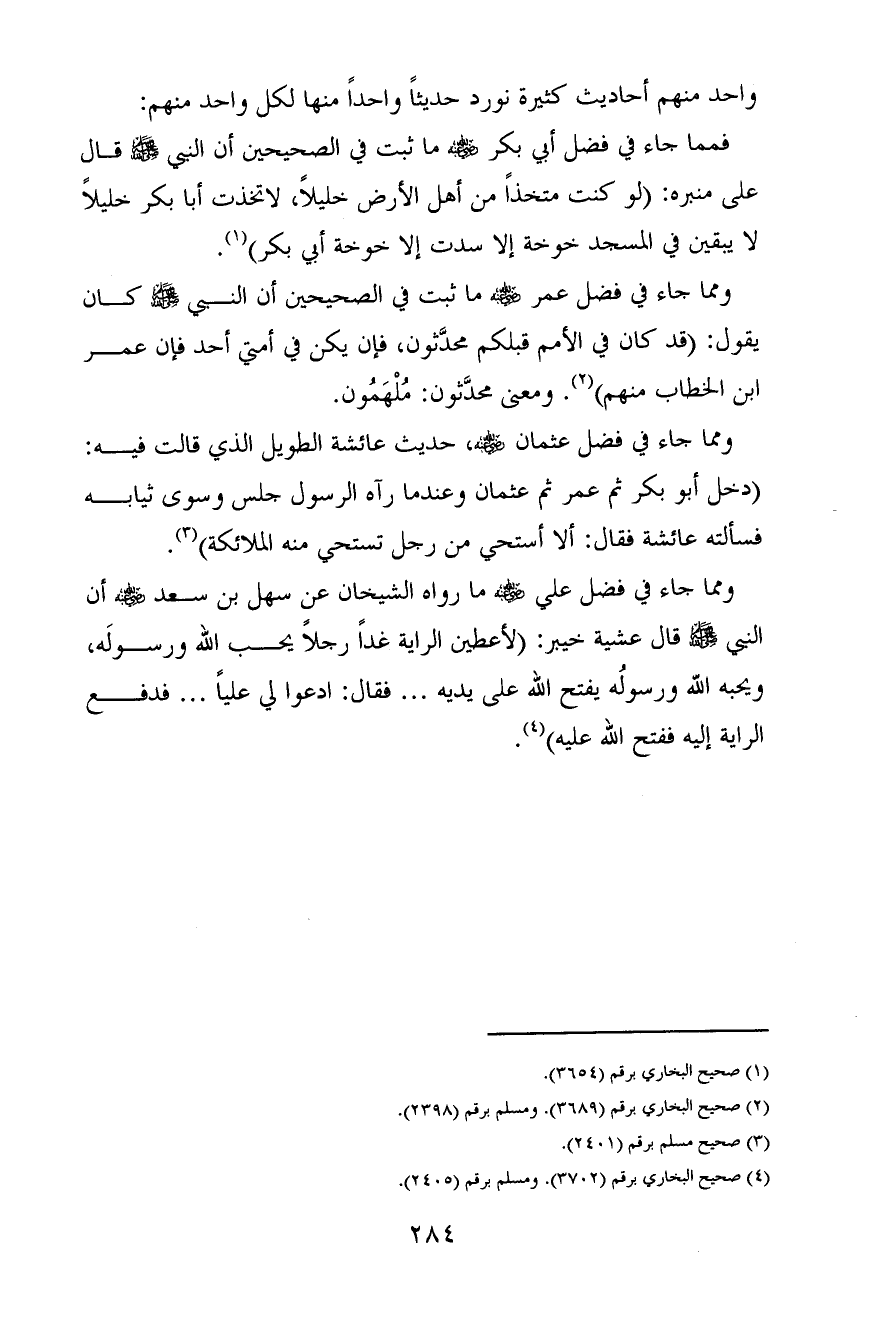 واحد منهم أحاديث كثيرة نورد حديثاً واحداً منها لكل واحد منهم:
فمما جاء في فضل أبي بكر ﵁ ما ثبت في الصحيحين أن النبي ﷺ قـال
على منبره: (لو كنت متخذاً من أهل الأرض خليلاً، لاتخذت أبا بكر خليلاً
لا يبقين في المسجد خوخة إلا سدت إلا خوخة أبي بكر)(١).
ومما جاء في فضل عمر ﵁ ما ثبت في الصحيحين أن النـــبي ﷺ كـــان
يقول: (قد كان في الأمم قبلكم محدَّثون، فإن يكن في أمتي أحد فإن عمـــر
ابن الخطاب منهم)(٢). ومعنى محدَّثون: مُلْهَمُون.
ومما جاء في فضل عثمان ﵁، حديث عائشة الطويل الذي قالت فيـــه:
(دخل أبو بكر ثم عمر ثم عثمان وعندما رآه الرسول جلس وسوى ثيابـــه
فسألته عائشة فقال: ألا أستحي من رجل تستحي منه الملائكة)(٣).
ومما جاء في فضل علي ﵁ ما رواه الشيخان عن سهل بن سـعد ﵁ أن
النبي ﷺ قال عشية خيبر: (لأعطين الراية غداً رجلاً يحـــب الله ورســـولَه،
ويحبه الله ورسولُه يفتح الله على يديه ... فقال: ادعوا لي علياً ... فدفـــع
الراية إليه ففتح الله عليه)(٤).
(١) صحيح البخاري برقم (٣٦٥٤).
(٢) صحيح البخاري برقم (٣٦٨٩). ومسلم برقم (٢٣٩٨).
(٣) صحيح مسلم برقم (٢٤٠١).
(٤) صحيح البخاري برقم (٣٧٠٢). ومسلم برقم (٢٤٠٥).
٢٨٤